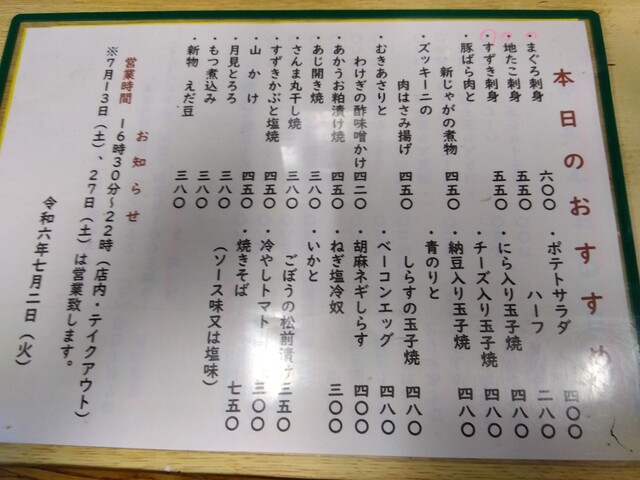 本日のおすすめ
・まぐろ刺身 六〇〇
・地たこ刺身 五五〇
・すずき刺身 五五〇
・豚ばら肉と
新じゃがの煮物 四五〇
・ズッキーニの
肉はさみ揚げ 四五〇
・むきあさりと
わけぎの酢味噌かけ 四二〇
・あかうお粕漬け焼 四五〇
・あじ開き焼 三八〇
・さんま丸干し焼 三八〇
・すずきかぶと塩焼 四五〇
・山かけ 四五〇
・月見とろろ 三八〇
・もつ煮込み 三八〇
・新物 えだ豆 三八〇
・ポテトサラダ 四〇〇
ハーフ 二八〇
・にら入り玉子焼 四八〇
・チーズ入り玉子焼 四八〇
・納豆入り玉子焼 四八〇
・青のりと
しらすの玉子焼 四八〇
・ベーコンエッグ 四八〇
・胡麻ネギしらす 四〇〇
・ねぎ塩冷奴 三〇〇
・いかと
ごぼうの松前漬け 三五〇
・冷やしトマト 三〇〇
・焼きそば 七五〇
(ソース味又は塩味)
お知らせ
営業時間 16時30分～22時(店内・テイクアウト)
※7月13日(土)、27日(土)は営業致します。
令和六年七月二日(火)